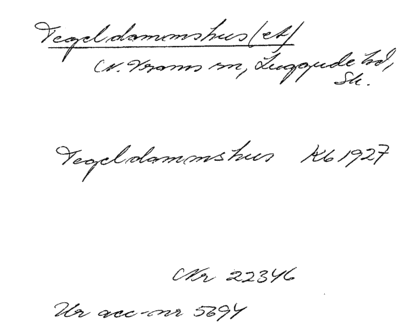 Tegeldammshus(et)
N. Vrams sn, Luggude hd,
Sk.
Tegeldammshus Kb 1927
Nr 22346
Ur acc-nr 5694